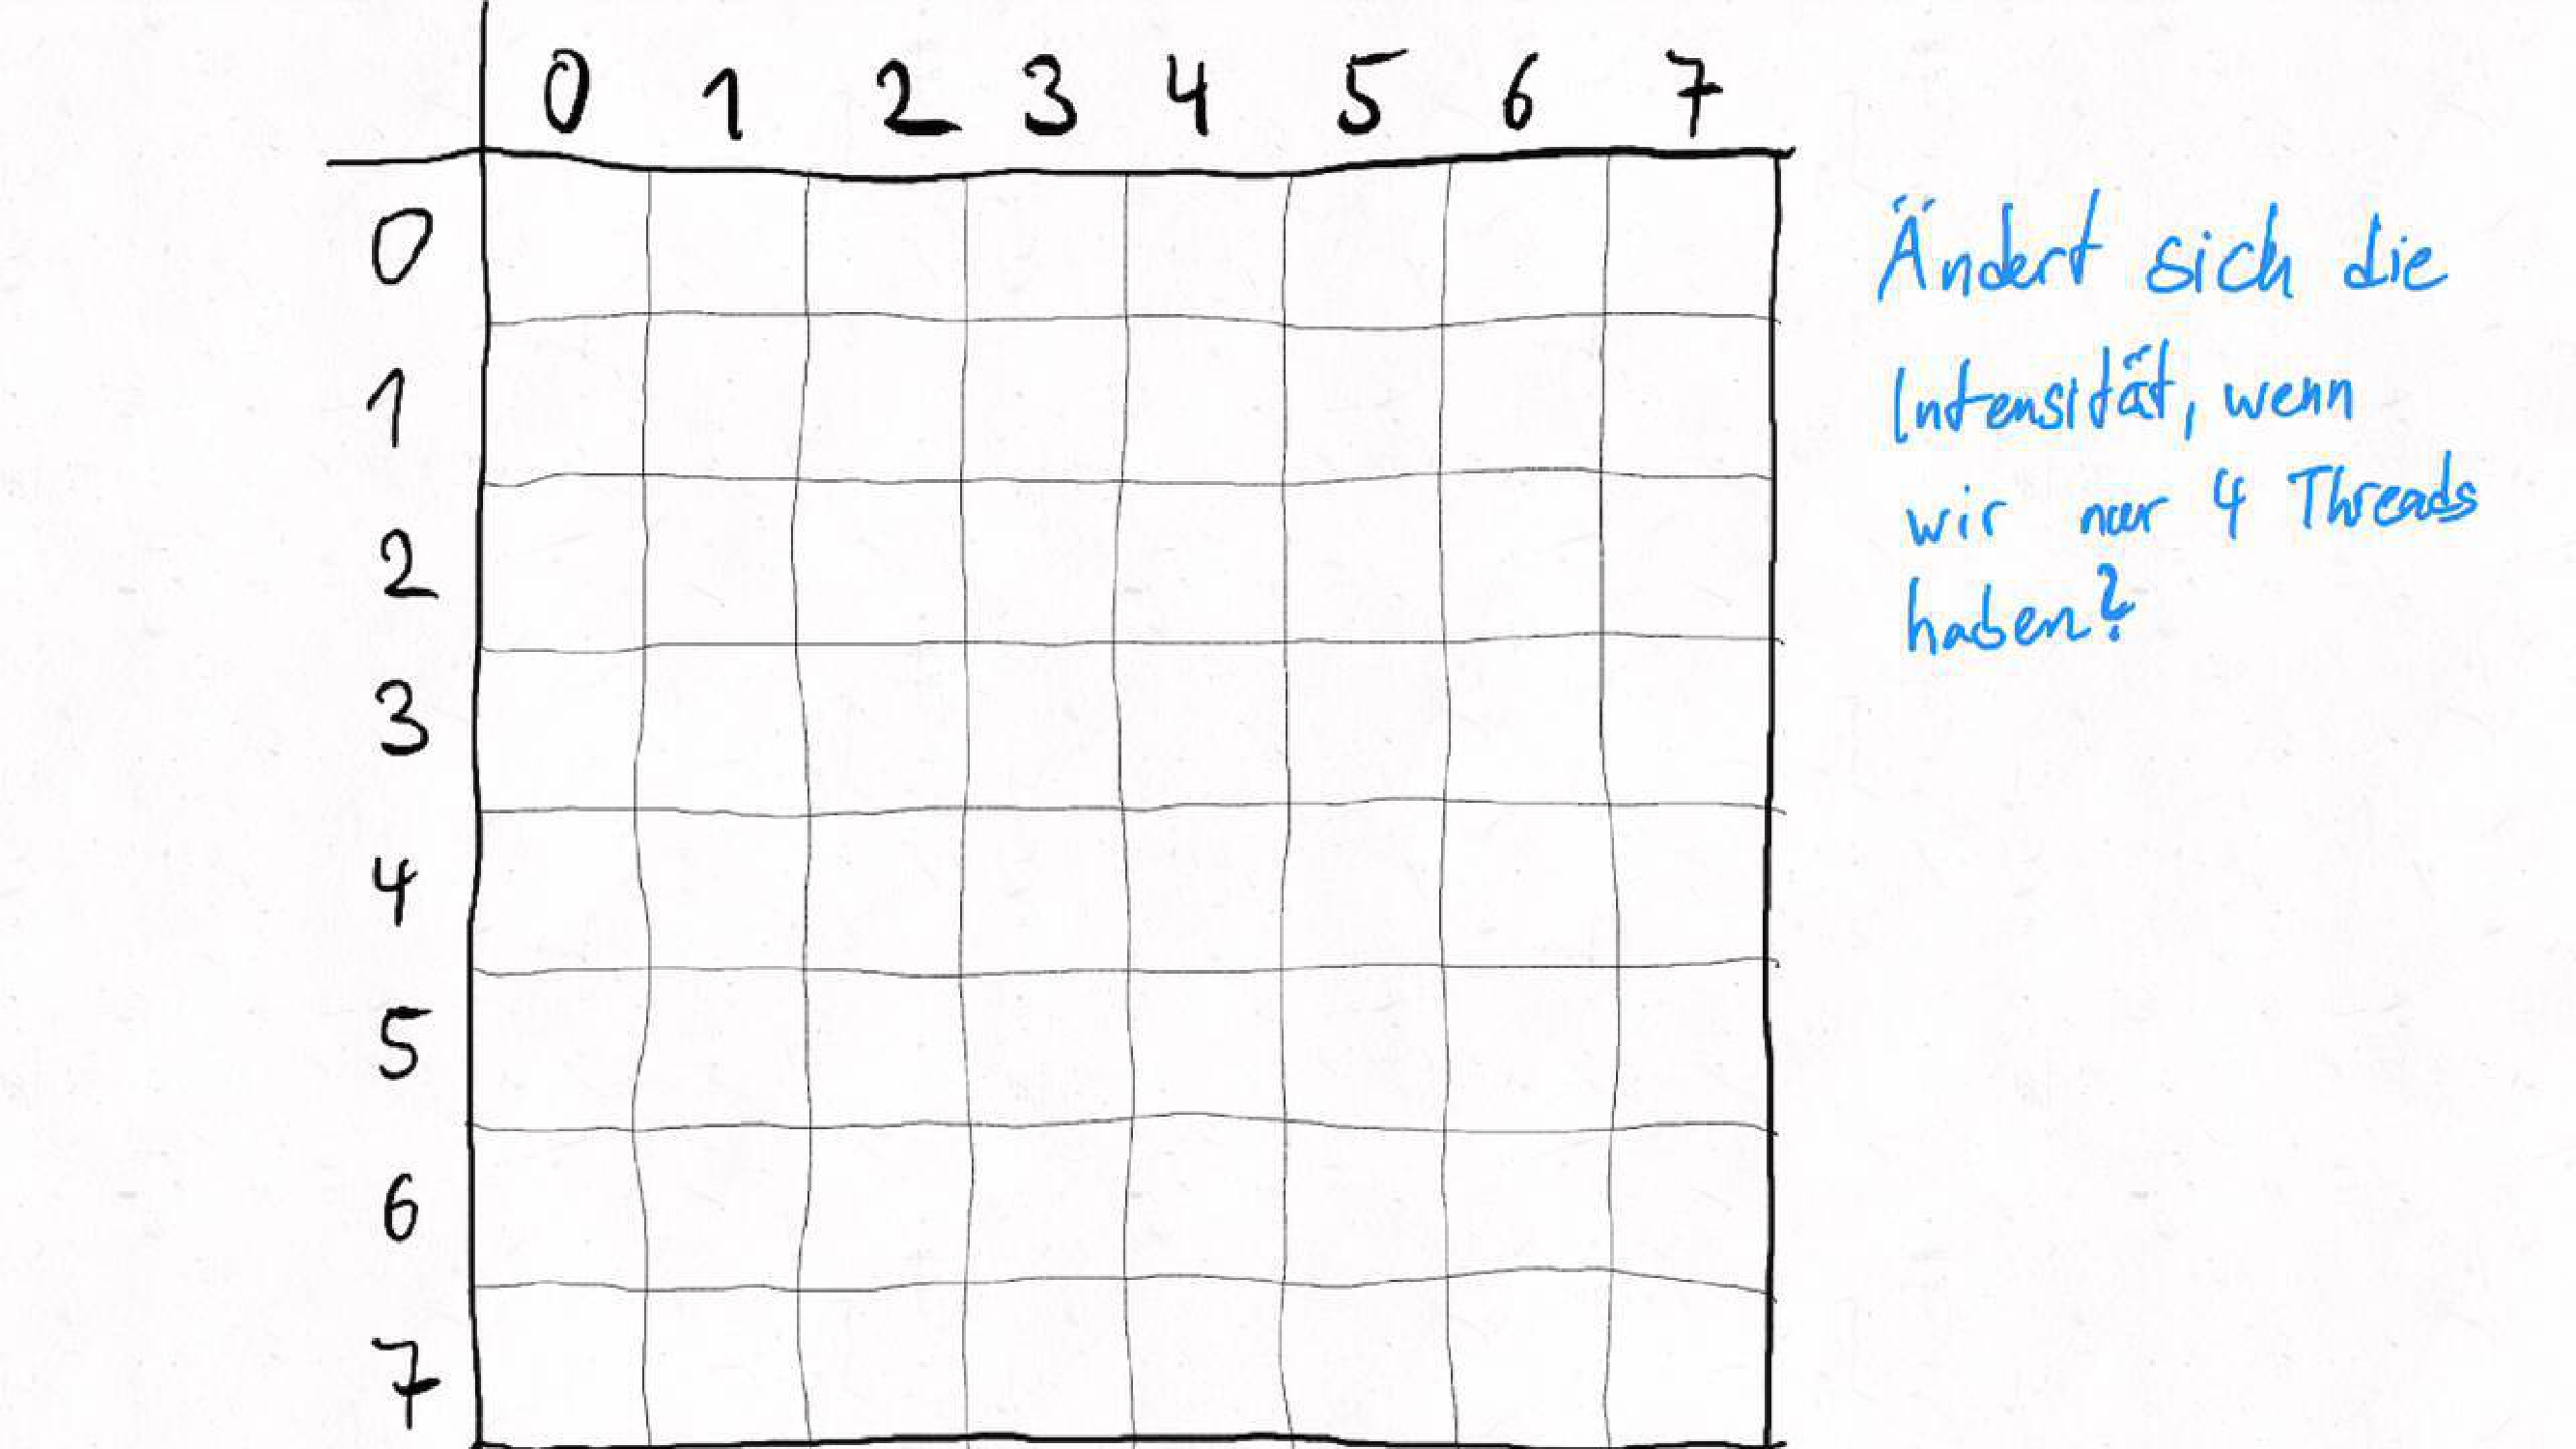 0 1 2 3 4 5 6 7
0
1
2
3
4
5
6
7
Ändert sich die
Intensität, wenn
wir nur 4 Threads
haben?